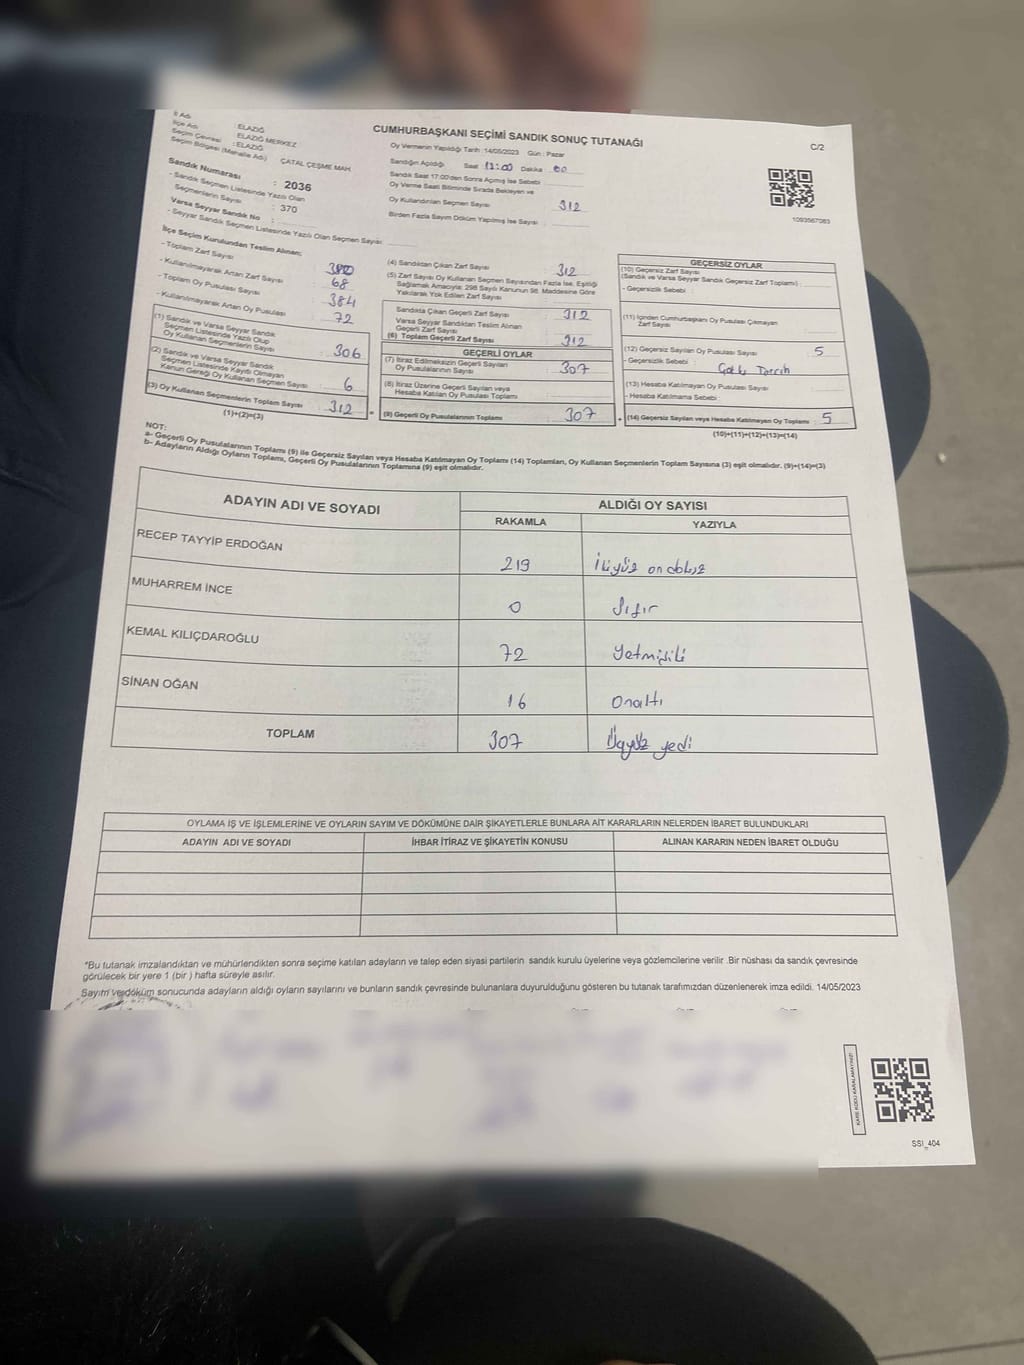 İl Adı : ELAZIĞ
İlçe Adı : ELAZIĞ MERKEZ
Seçim Çevresi : ELAZIĞ
Seçim Bölgesi (Mahalle Adı) ÇATAL ÇEŞME MAH.
Sandık Numarası : 2036
- Sandık Seçmen Listesinde Yazılı Olan
Seçmenlerin Sayısı : 370
Varsa Seyyar Sandık No :
- Seyyar Sandık Seçmen Listesinde Yazılı Olan Seçmen Sayısı
CUMHURBAŞKANI SEÇİMİ SANDIK SONUÇ TUTANAĞI
C/2
Oy Vermenin Yapıldığı Tarih :14/05/2023 Gün : Pazar
Sandığın Açıldığı Saat Dakika
Sandık Saat 17:00'den Sonra Açılmış İse Sebebi
Oy Verme Saati Bitiminde Sırada Bekleyen ve
Oy Kullandırılan Seçmen Sayısı 312
Birden Fazla Sayım Döküm Yapılmış İse Sayısı
1093567083
İlçe Seçim Kurulundan Teslim Alınan;
- Toplam Zarf Sayısı
- Kullanılmayarak Artan Zarf Sayısı 68
- Toplam Oy Pusulası Sayısı 384
- Kullanılmayarak Artan Oy Pusulası 72
(1) Sandık ve Varsa Seyyar Sandık
Seçmen Listesinde Yazılı Olup
Oy Kullanan Seçmenlerin Sayısı 306
(2) Sandık ve Varsa Seyyar Sandık
Seçmen Listesinde Kayıtlı Olmayan
Kanun Gereği Oy Kullanan Seçmen Sayısı 6
(3) Oy Kullanan Seçmenlerin Toplam Sayısı 312
(1)+(2)=(3)
(4) Sandıktan Çıkan Zarf Sayısı 312
(5) Zarf Sayısı Oy Kullanan Seçmen Sayısından Fazla İse, Eşitliği
Sağlamak Amacıyla; 298 Sayılı Kanunun 98. Maddesine Göre
Yakılarak Yok Edilen Zarf Sayısı
Sandıkta Çıkan Geçerli Zarf Sayısı 312
Varsa Seyyar Sandıktan Teslim Alınan
Geçerli Zarf Sayısı
(6) Toplam Geçerli Zarf Sayısı 312
GEÇERLİ OYLAR
(7) İtiraz Edilmeksizin Geçerli Sayılan
Oy Pusulalarının Sayısı 307
(8) İtiraz Üzerine Geçerli Sayılan veya
Hesaba Katılan Oy Pusulası Toplamı
= (9) Geçerli Oy Pusulalarının Toplamı 307
GEÇERSİZ OYLAR
(10) Geçersiz Zarf Sayısı
(Sandık ve Varsa Seyyar Sandık Geçersiz Zarf Toplamı) :
- Geçersizlik Sebebi :
(11) İçinden Cumhurbaşkanı Oy Pusulası Çıkmayan
Zarf Sayısı
(12) Geçersiz Sayılan Oy Pusulası Sayısı : 5
- Geçersizlik Sebebi : Tercih
(13) Hesaba Katılmayan Oy Pusulası Sayısı
- Hesaba Katılmama Sebebi :
+ (14) Geçersiz Sayılan veya Hesaba Katılmayan Oy Toplamı : 5
(10)+(11)+(12)+(13)=(14)
NOT:
a- Geçerli Oy Pusulalarının Toplamı (9) ile Geçersiz Sayılan veya Hesaba Katılmayan Oy Toplamı (14) Toplamları, Oy Kullanan Seçmenlerin Toplam Sayısına (3) eşit olmalıdır. (9)+(14)=(3)
b- Adayların Aldığı Oyların Toplamı, Geçerli Oy Pusulalarının Toplamına (9) eşit olmalıdır.
ADAYIN ADI VE SOYADI ALDIĞI OY SAYISI
RAKAMLA YAZIYLA
RECEP TAYYİP ERDOĞAN 219 İkiyüz on dokuz
MUHARREM İNCE 0 Sıfır
KEMAL KILIÇDAROĞLU 72 Yetmişiki
SİNAN OĞAN 16 Onaltı
TOPLAM 307 Üçyüz yedi
OYLAMA İŞ VE İŞLEMLERİNE VE OYLARIN SAYIM VE DÖKÜMÜNE DAİR ŞİKAYETLERLE BUNLARA AİT KARARLARIN NELERDEN İBARET BULUNDUKLARI
ADAYIN ADI VE SOYADI İHBAR İTİRAZ VE ŞİKAYETİN KONUSU ALINAN KARARIN NEDEN İBARET OLDUĞU
*Bu tutanak imzalandıktan ve mühürlendikten sonra seçime katılan adayların ve talep eden siyasi partilerin sandık kurulu üyelerine veya gözlemcilerine verilir .Bir nüshası da sandık çevresinde
görülecek bir yere 1 (bir ) hafta süreyle asılır.
Sayım ve döküm sonucunda adayların aldığı oyların sayılarını ve bunların sandık çevresinde bulunanlara duyurulduğunu gösteren bu tutanak tarafımızdan düzenlenerek imza edildi. 14/05/2023
KARE KODU KARALAMAYINIZ!
SSI_404